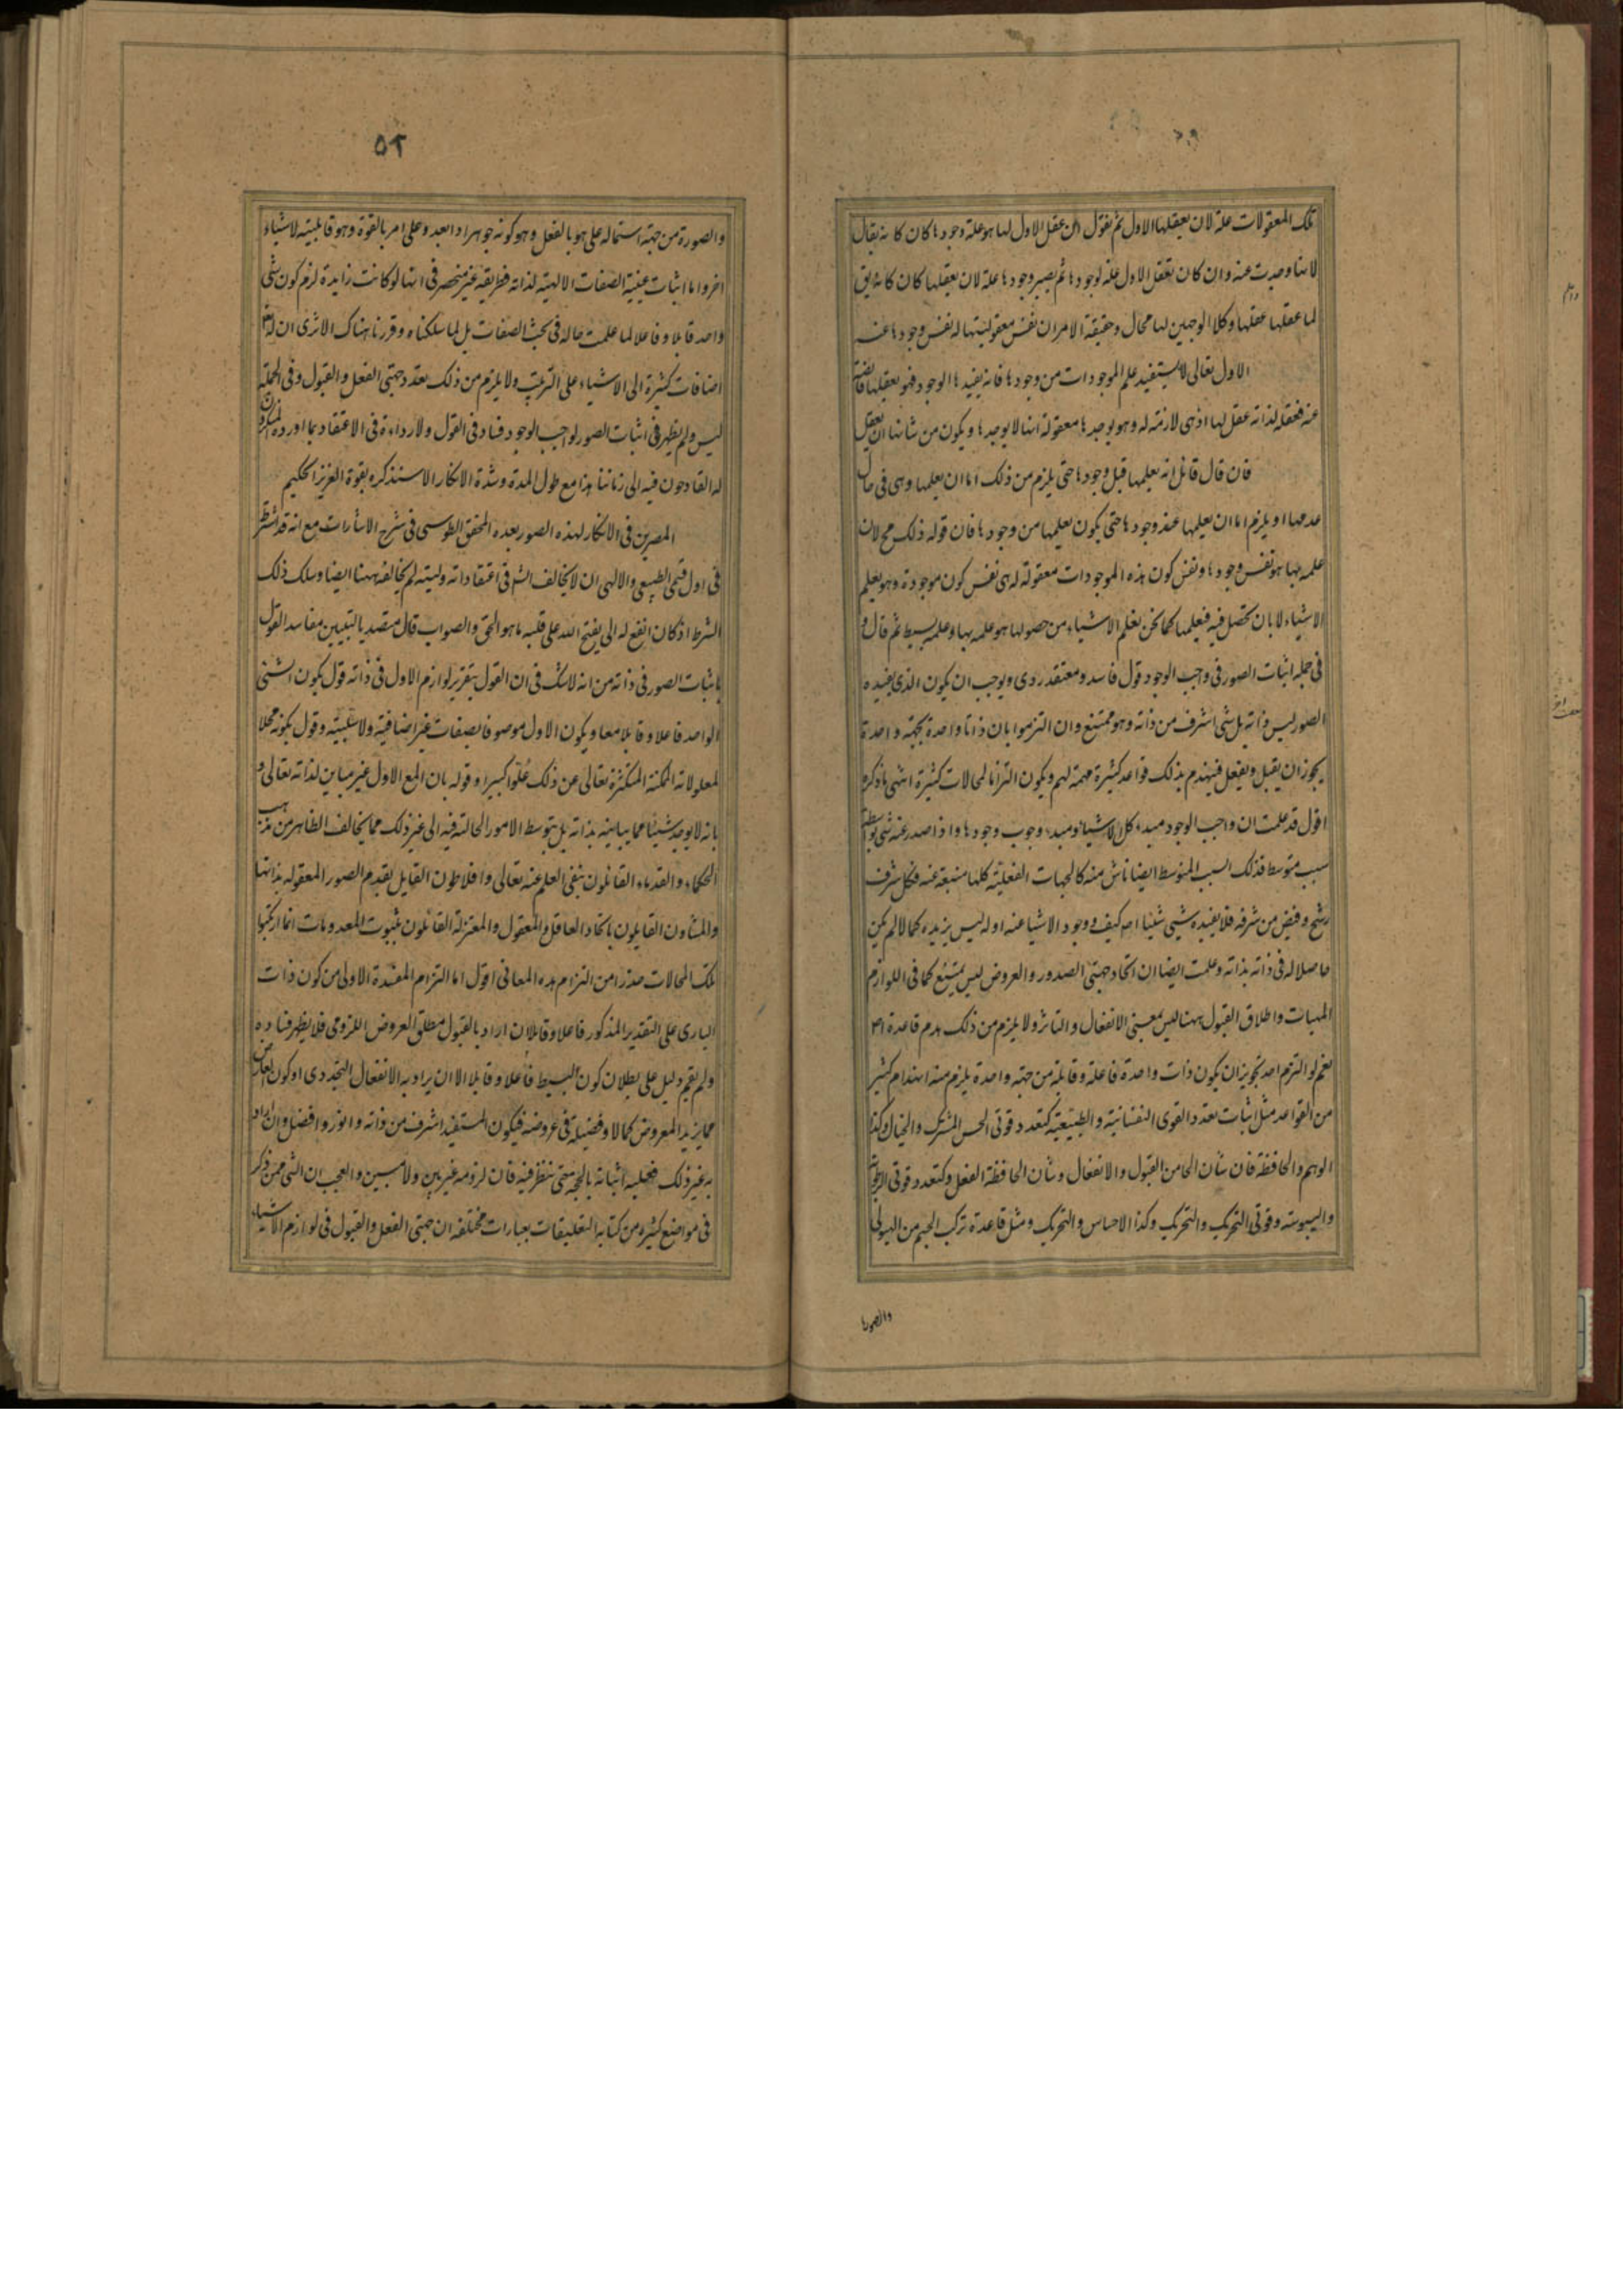 تلك المعقولات علة لان يعقلها الاول ثم نقول ان عقل الاول لها هو علة وجودها كان كانه يقال
لانها وجدت عنه وان كان تعقل الاول علة لوجودها ثم يصير وجودها علة لان يعقلها كان كانه يق
لما عقلها عقلها وكلا الوجهين لها محال وحقيقة الامر ان نفس معقوليتها له نفس وجودها عنه
الاول تعالى لا يستفيد علم الموجودات من وجودها فانه يفيدها الوجود فهو يعقلها فايضة
عنه فعقله لذاته عقل لها اذ هى لازمة له وهو يوجدها معقولة انها لا يوجدها ويكون من شانها ان يعقل
فان قال قائل انه يعلمها قبل وجودها حتى يلزم من ذلك اما ان يعلمها وهى فى حال
عدمها او يلزم اما ان يعلمها عند وجودها حتى يكون يعلمها من وجودها فان قوله ذلك مح لان
علمه بها هو نفس وجودها ونفس كون هذه الموجودات معقولة له هى نفس كون موجودة وهو يعلم
الاشياء لا بان تحصل فيه فيعلمها كما نحن نعلم الاشياء من حصولها هو علمه بها وعلمه بسيط ثم قال و
فى جملة اثبات الصور فى واجب الوجود قول فاسد ومعتقد ردى ويوجب ان يكون الذى يفيده
الصور ليس ذاته بل شى اشرف من ذاته وهو ممتنع وان التزموا بان ذاتا واحدة بجهة واحدة
يجوز ان يقبل ويفعل فينهدم بذلك قواعد كثيرة مهمة لهم ويكون التزاما لمحالات كثيرة انتهى ما ذكره
اقول قد علمت ان واجب الوجود مبدء كل الاشياء ومبدء وجوب وجودها واذا صدر عنه شى بواسطة
سبب متوسط فذلك السبب المتوسط ايضا ناش منه كالجهات الفعلية كلها منبعثة عنه فكل شرف
رشح وفيض من شرفه فلا يفيده شيى شيئا اصه كيف ووجود الاشيا عنه اوله ليس يزيده كمالا لم يكن
حاصلا له فى ذاته بذاته وعلمت ايضا ان اتحاد جهتى الصدور والعروض ليس بممتنع كما فى اللوازم
المهيات واطلاق القبول ههنا ليس بمعنى الانفعال والتاثر ولا يلزم من ذلك هدم قاعدة اصه
نعم لو التزم احد تجويز ان يكون ذات واحدة فاعلة وقابلة من جهة واحدة يلزم منه انهدام كثير
من القواعد مثل اثبات تعدد القوى النفسانية والطبيعية كتعدد قوتى الحس المشترك والخيال وكذا
الوهم والحافظة فان شان الحامن القبول والانفعال وشان الحافظة الفعل وكتعدد قوتى الرطوبة
واليبوسة وقوتى التحريك والتحريك وكذا الاحساس والتحريك ومثل قاعدة تركب الجسم من الهيولى
والصورة
٥٢
والصورة من جهة اشتماله على هو بالفعل وهو كونه جوهرا ذا ابعد وعلى امر بالقوة وهو قابليته لاشياء
اخر واما اثبات عينية الصفات الالهية لذاته فطريقه غير منحصر فى انها لو كانت زايدة لزم كون شى
واحد قابلا وفاعلا لما علمت حاله فى بحث الصفات بل لما سلكناه وقررنا هناك الا ترى ان له تعالى
اضافات كثيرة الى الاشياء على الترتيب ولا يلزم من ذلك تعدد جهتى الفعل والقبول وفى الجملة
ليس ولم يظهر فى اثبات الصور لواجب الوجود فساد فى القول ولا رداءة فى الاعتقاد بما اورده المنكرون
له القادحون فيه الى زماننا هذا مع طول المدة وشدة الانكار الا سنذكره بقوة العزيز الحكيم
المصرين فى الانكار لهذه الصور بعده المحقق الطوسى فى شرح الاشارات مع انه قد اشترط
فى اول قسمى الطبيعى والالهى ان لا يخالف الش فى اعتقاداته وليته لم يخالفه ههنا ايضا وسلك ذلك
الشرط اذ كان انفع له الى يفتح الله على قلبه ما هو الحق والصواب قال متصديا لتبيين مفاسد القول
باثبات الصور فى ذاته من انه لا شك فى ان القول بتقرير لوازم الاول فى ذاته قول بكون الشى
الواحد فاعلا وقابلا معا وبكون الاول موصوفا بصفات غير اضافية ولا سلبية وقول بكونه محلا
لمعلولاته الممكنة المتكثرة تعالى عن ذلك علوا كبيرا وقوله بان المع الاول غير مباين لذاته تعالى و
بانه لا يوجد شيئا مما يباينه بذاته بل بتوسط الامور الحالة فيه الى غير ذلك مما يخالف الظاهر من مذهب
الحكماء والقدماء القائلون بنفى العلم عنه تعالى وافلاطون القايل بقدم الصور المعقوله بذاتها
والمشاون القايلون باتحاد العاقل والمعقول والمعتزلة القائلون بثبوت المعدومات انما ارتكبوا
تلك المحالات حذرا من التزام هذه المعانى اقول اما التزام المفسدة الاولى من كون ذات
البارى على التقدير المذكور فاعلا وقابلا ان اراد بالقبول مطلق العروض اللزومى فلا يظهر فساده
ولم يقم دليل على بطلان كون البسيط فاعلا وقابلا الا ان يراد به الانفعال التجددى او كون العارض
مما يزيد المعروض كمالا وفضيلة فى عروضه فيكون المستفيد اشرف من ذاته وانور وافضل وان اراد
به غير ذلك فعليه اثباته بالحجة حتى ننظر فيه فان لزومه غير بين ولا مبين والعجب ان الشى ممن ذكر
فى مواضع كثيره من كتابه التعليقات بعبارات مختلفه ان جهتى الفعل والقبول فى لوازم الاشياء